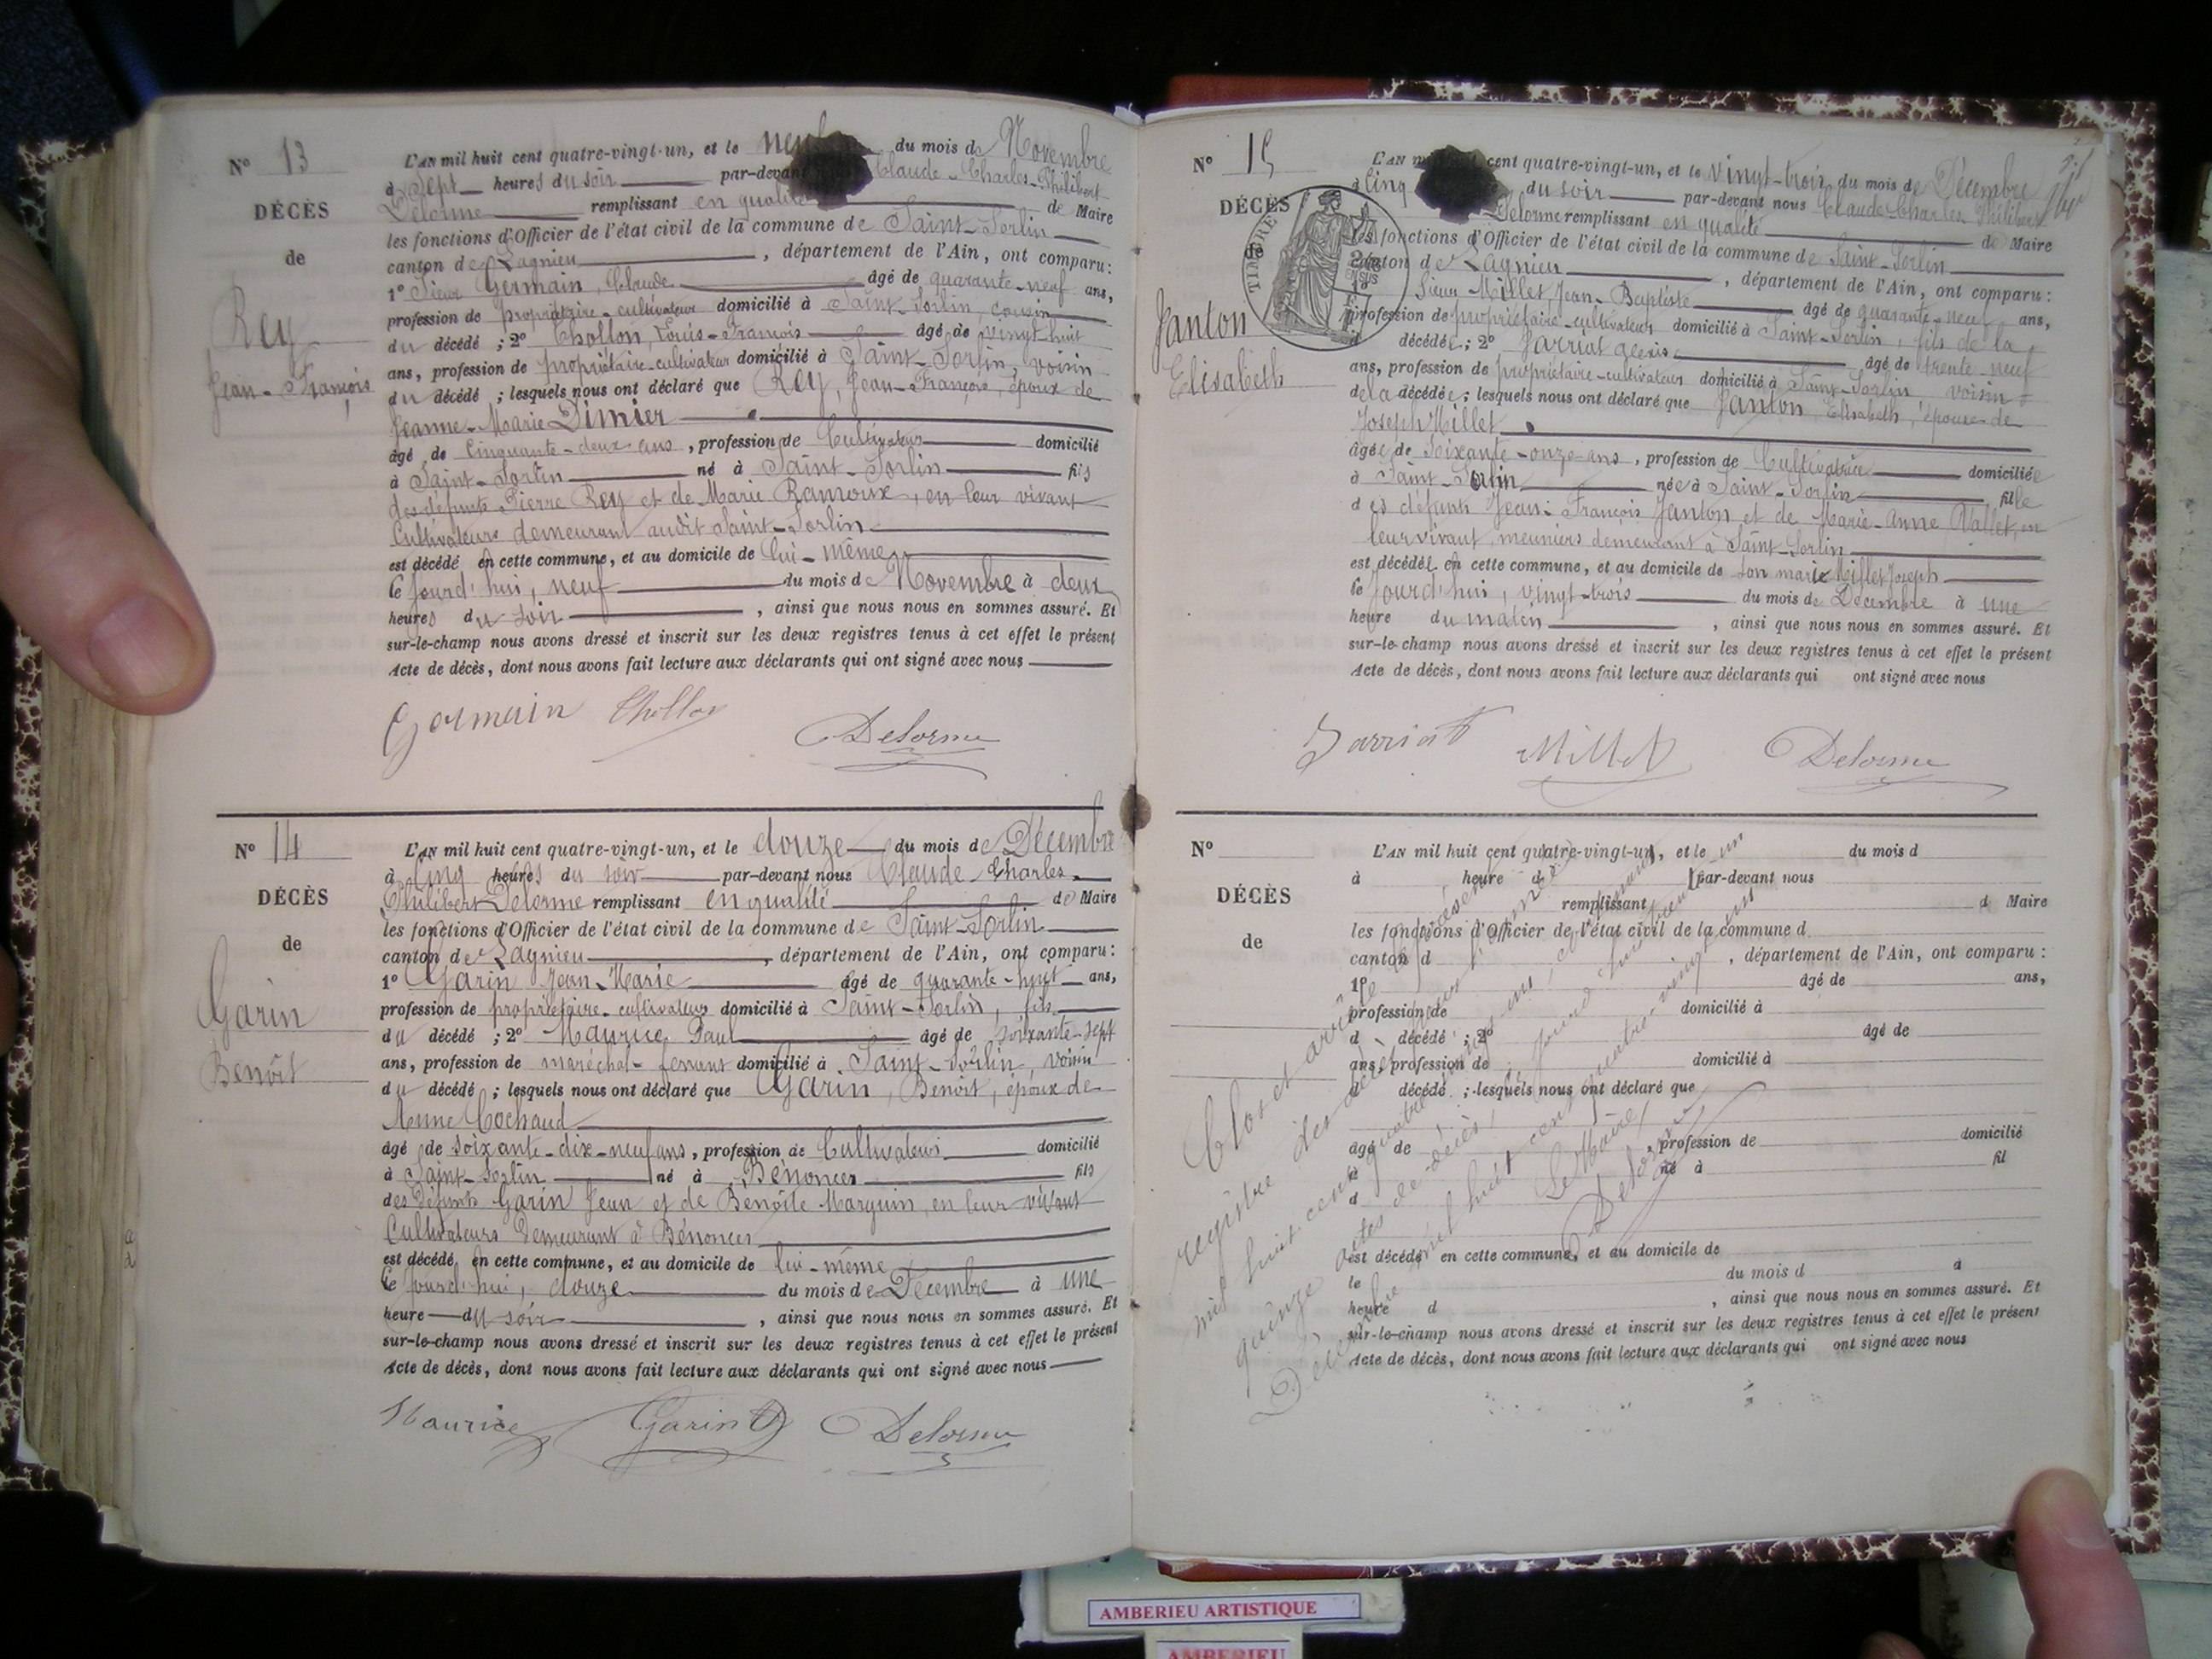 N° 13
DÉCÈS
de
Rey
Jean-François
L'AN mil huit cent quatre-vingt-un, et le neuf du mois de Novembre
à Sept heures du soir par-devant Claude-Charles-Philibert
Delorme remplissant en qualité de Maire
les fonctions d'Officier de l'état civil de la commune de Saint-Sorlin
canton de Lagnieu, département de l'Ain, ont comparu:
1° Sieur Germain, Claude âgé de quarante-neuf ans,
profession de propriétaire-cultivateur domicilié à Saint-Sorlin, cousin
du décédé ; 2° Chollon, Louis-François âgé de vingt-huit
ans, profession de propriétaire-cultivateur domicilié à Saint-Sorlin, voisin
du décédé ; lesquels nous ont déclaré que Rey, Jean-François, époux de
Jeanne-Marie Dimier
âgé de Cinquante-deux ans, profession de Cultivateur domicilié
à Saint-Sorlin né à Saint-Sorlin fils
des défunts Pierre Rey et de Marie Ramoux, en leur vivant
Cultivateurs demeurant audit Saint-Sorlin
est décédé en cette commune, et au domicile de lui-même
le jourd'hui, neuf du mois de Novembre à deux
heures du soir, ainsi que nous nous en sommes assuré. Et
sur-le-champ nous avons dressé et inscrit sur les deux registres tenus à cet effet le présent
Acte de décès, dont nous avons fait lecture aux déclarants qui ont signé avec nous
Germain Chollon Delorme
N° 14
DÉCÈS
de
Garin
Benoît
L'AN mil huit cent quatre-vingt-un, et le douze du mois de Décembre
à cinq heures du soir par-devant nous Claude-Charles
Philibert Delorme remplissant en qualité de Maire
les fonctions d'Officier de l'état civil de la commune de Saint-Sorlin
canton de Lagnieu, département de l'Ain, ont comparu:
1° Garin Jean-Marie âgé de quarante-huit ans,
profession de propriétaire-cultivateur domicilié à Saint-Sorlin, fils
du décédé ; 2° Maurice Paul âgé de soixante-sept
ans, profession de maréchal-ferrant domicilié à Saint-Sorlin, voisin
du décédé ; lesquels nous ont déclaré que Garin, Benoît, époux de
Anne Cochaud
âgé de soixante-dix-neuf ans, profession de Cultivateur domicilié
à Saint-Sorlin né à Bénonces fils
des défunts Garin Jean et de Benoîte Marguin, en leur vivant
Cultivateurs Demeurant à Bénonces
est décédé en cette commune, et au domicile de lui-même
le jourd'hui, douze du mois de Décembre à une
heure du soir, ainsi que nous nous en sommes assuré. Et
sur-le-champ nous avons dressé et inscrit sur les deux registres tenus à cet effet le présent
Acte de décès, dont nous avons fait lecture aux déclarants qui ont signé avec nous
Maurice Garin Delorme
N° 15
DÉCÈS
de
Janton
Elisabeth
TIMBRE
L'AN cent quatre-vingt-un, et le vingt-trois du mois de Décembre
à cinq du soir par-devant nous Claude-Charles Philibert
Delorme remplissant en qualité de Maire
les fonctions d'Officier de l'état civil de la commune de Saint-Sorlin
canton de Lagnieu, département de l'Ain, ont comparu:
1° Sieur Millet, Jean-Baptiste âgé de quarante-neuf ans,
profession de propriétaire-cultivateur domicilié à Saint-Sorlin, fils de la
décédée ; 2° Jarriat Alexis âgé de trente-neuf
ans, profession de propriétaire-cultivateur domicilié à Saint-Sorlin voisin
de la décédée ; lesquels nous ont déclaré que Janton, Elisabeth, épouse de
Joseph Millet
âgée de Soixante-onze ans, profession de Cultivatrice domiciliée
à Saint-Sorlin née à Saint-Sorlin fille
des défunts Jean-François Janton et de Marie-Anne Vallet, en
leur vivant meuniers demeurant à Saint-Sorlin
est décédée en cette commune, et au domicile de son marie Millet Joseph
le jourd'hui, vingt-trois du mois de Décembre à une
heure du matin, ainsi que nous nous en sommes assuré. Et
sur-le-champ nous avons dressé et inscrit sur les deux registres tenus à cet effet le présent
Acte de décès, dont nous avons fait lecture aux déclarants qui ont signé avec nous
Jarriat Millet Delorme
N°
DÉCÈS
de
L'AN mil huit cent quatre-vingt-un, et le du mois d
à heure d par-devant nous
remplissant d Maire
les fonctions d'Officier de l'état civil de la commune d
canton d, département de l'Ain, ont comparu :
1° âgé de ans,
profession de domicilié à
d décédé ; 2° âgé de
ans, profession de domicilié à
d décédé ; lesquels nous ont déclaré que
âgé de, profession de domicilié
à né à fil
d
est décédé en cette commune, et au domicile de
le du mois d à
heure d, ainsi que nous nous en sommes assuré. Et
sur-le-champ nous avons dressé et inscrit sur les deux registres tenus à cet effet le présent
Acte de décès, dont nous avons fait lecture aux déclarants qui ont signé avec nous
Clos et arrêté le présent
registre des décès
mil huit cent quatre
quinze actes de décès
Décembre mil huit cent quatre-vingt-un
Le Maire
Delorme
AMBERIEU ARTISTIQUE
AMBERIEU